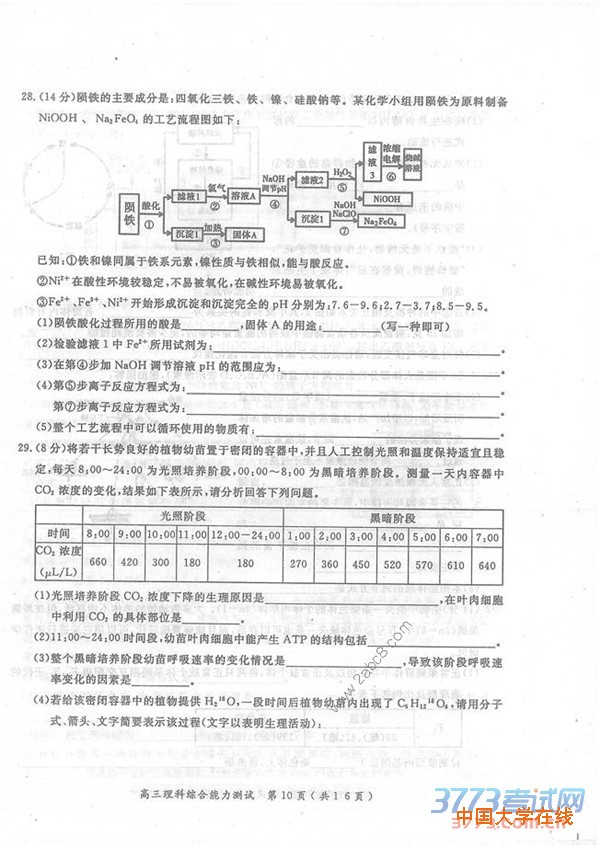 28.(14分)陨铁的主要成分是:四氧化三铁、铁、镍、硅酸钠等。某化学小组用陨铁为原料制备
NiOOH 、 Na₂FeO₄ 的工艺流程图如下:
陨铁 酸化 ① 滤液1 氯气 ② 溶液A NaOH 调节pH ④ 滤液2 H₂O₂ ⑤ 滤液3 浓缩 电解 ⑥ 烧碱溶液
NiOOH
沉淀1 加热 ③ 固体A 沉淀1 NaOH NaClO ⑦ Na₂FeO₄
已知:①铁和镍同属于铁系元素,镍性质与铁相似,能与酸反应。
②Ni²⁺在酸性环境较稳定,不易被氧化,在碱性环境易被氧化。
③Fe²⁺、Fe³⁺、Ni²⁺开始形成沉淀和沉淀完全的 pH 分别为:7.6-9.6;2.7-3.7;8.5-9.5。
(1)陨铁酸化过程所用的酸是________,固体 A 的用途:________(写一种即可)
(2)检验滤液 1 中 Fe²⁺所用试剂为:________。
(3)在第④步加 NaOH 调节溶液 pH 的范围应为:________。
(4)第⑤步离子反应方程式为:________
第⑦步离子反应方程式为:________。
(5)整个工艺流程中可以循环使用的物质有:________。
29.(8分)将若干长势良好的植物幼苗置于密闭的容器中,并且人工控制光照和温度保持适宜且稳
定,每天 8:00~24:00 为光照培养阶段,00:00~8:00 为黑暗培养阶段。测量一天内容器中
CO₂ 浓度的变化,结果如下表所示,请分析回答下列问题。
光照阶段 黑暗阶段
时间 8:00 9:00 10:00 11:00 12:00-24:00 1:00 2:00 3:00 4:00 5:00 6:00 7:00
CO₂ 浓度(μL/L) 660 420 300 180 180 270 360 450 520 570 610 640
(1)光照培养阶段 CO₂ 浓度下降的生理原因是________,在叶肉细胞
中利用 CO₂ 的具体部位是________。
(2)11:00~24:00 时间段,幼苗叶肉细胞中能产生 ATP 的结构包括________。
(3)整个黑暗培养阶段幼苗呼吸速率的变化情况是________,导致该阶段呼吸速
率变化的因素是________。
(4)若给该密闭容器中的植物提供 H₂¹⁸O,一段时间后植物幼苗内出现了 C₆H₁₂¹⁸O₆,请用分子
式、箭头、文字简要表示该过程(文字以表明生理活动):
www.2abc8.com
高三理科综合能力测试 第10页(共16页)
3773考试网
3773.com.cn
中国大学在线
1